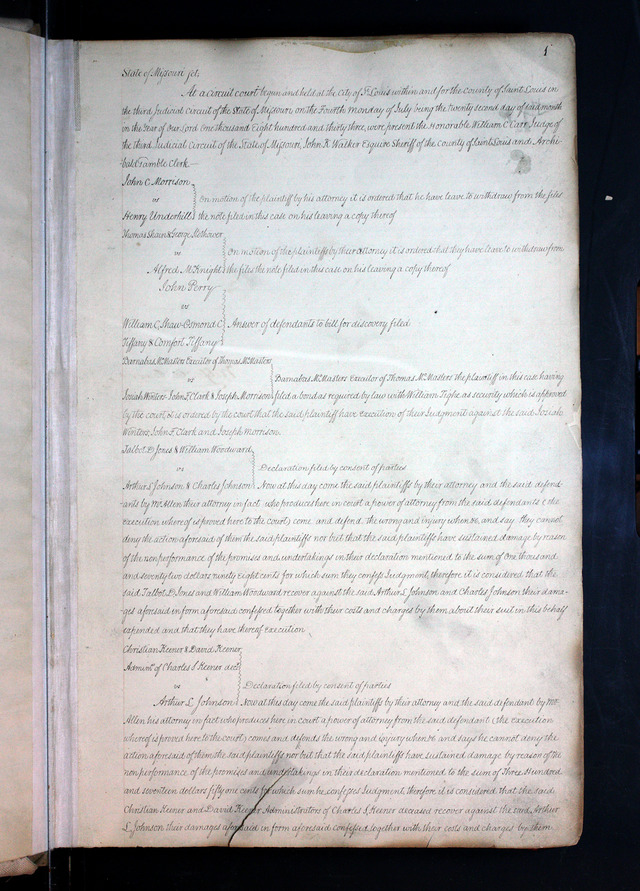 1
State of Missouri sct,
At a circuit court begun and held at the City of St Louis within and for the County of Saint Louis in
the third Judicial Circuit of the State of Missouri, on the Fourth monday of July being the twenty second day of said month
in the Year of our Lord One thousand Eight hundred and thirty three, were present the Honorable William C Carr Judge of
the third Judicial Circuit of the State of Missouri, John K Walker Esquire Sheriff of the County of Saint Louis and Archi-
bald Gamble Clerk
John C. Morrison
vs
On motion of the plaintiff by his attorney it is ordered that he have leave to withdraw from the files
Henry Underhill the note filed in this case on his leaving a copy thereof
Thomas Shain & George Hethower
vs
On motion of the plaintiffs by their attorney it is ordered that they have leave to withdraw from
Alfred McKnight the files the note filed in this case on his leaving a copy thereof
John Perry
vs
William C. Shaw Osmond C. Answer of defendants to bill for discovery filed
Tiffany & Comfort Tiffany
Barnabus McMasters Executor of Thomas McMasters
vs
Barnabus McMasters Executor of Thomas McMasters the plaintiff in this case having
Josiah Winters John F. Clark & Joseph Morrison filed a bond as required by law with William Tighe as security which is approved
by the court it is ordered by the court that the said plaintiff have execution of their Judgment against the said Josiah
Winters, John F. Clark and Joseph Morrison.
Talbot D Jones & William Woodward
vs
Declaration filed by consent of parties
Arthur L Johnson & Charles Johnson Now at this day come the said plaintiffs by their attorney and the said defend-
ants by Mc Allen their attorney in fact who produces here in court a power of attorney from the said defendants (the
execution whereof is proved here to the court) come and defend the wrong and injury when &c, and say they cannot
deny the action aforesaid of them the said plaintiffs nor but that the said plaintiffs have sustained damage by reason
of the nonperformance of the promises and undertakings in their declaration mentioned to the sum of One thousand
and seventy two dollars ninety eight cents for which sum they confess Judgment, therefore it is considered that the
said Talbot D. Jones and William Woodward recover against the said Arthur L Johnson and Charles Johnson their dama-
ges aforesaid in form aforesaid confessed together with their costs and charges by them about their suit in this behalf
expended and that they have thereof execution
Christian Keener & David Keener
Admint. of Charles S Keener decd
vs
Declaration filed by consent of parties
Arthur L. Johnson Now at this day come the said plaintiffs by their attorney and the said defendant by Mc
Allen his attorney in fact who produces here in court a power of attorney from the said defendant (the execution
whereof is proved here to the court) comes and defends the wrong and injury when &c and says he cannot deny the
action aforesaid of them the said plaintiffs nor but that the said plaintiffs have sustained damage by reason of the
nonperformance of the promises and undertakings in their declaration mentioned to the sum of Three Hundred
and seventeen dollars fifty one cents for which sum he confesses Judgment, therefore it is considered that the said
Christian Keener and David Keener Administrators of Charles S. Keener deceased recover against the said Arthur
L Johnson their damages aforesaid in form aforesaid confessed, together with their costs and charges by them